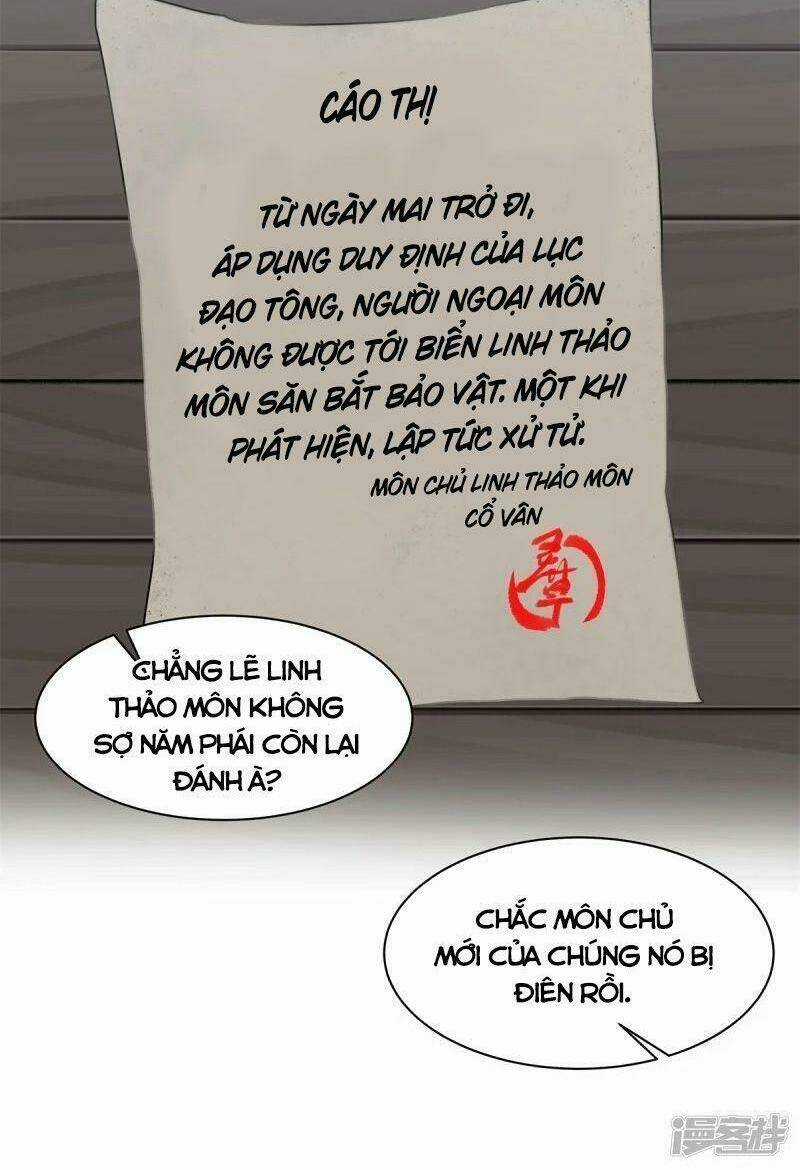 CÁO THỊ
TỪ NGÀY MAI TRỞ ĐI,
ÁP DỤNG DUY ĐỊNH CỦA LỤC
ĐẠO TÔNG, NGƯỜI NGOẠI MÔN
KHÔNG ĐƯỢC TỚI BIỂN LINH THẢO
MÔN SĂN BẮT BẢO VẬT. MỘT KHI
PHÁT HIỆN, LẬP TỨC XỬ TỬ.
MÔN CHỦ LINH THẢO MÔN
CỔ VÂN
CHẲNG LẼ LINH
THẢO MÔN KHÔNG
SỢ NĂM PHÁI CÒN LẠI
ĐÁNH À?
CHẮC MÔN CHỦ
MỚI CỦA CHÚNG NÓ BỊ
ĐIÊN RỒI.
漫客栈